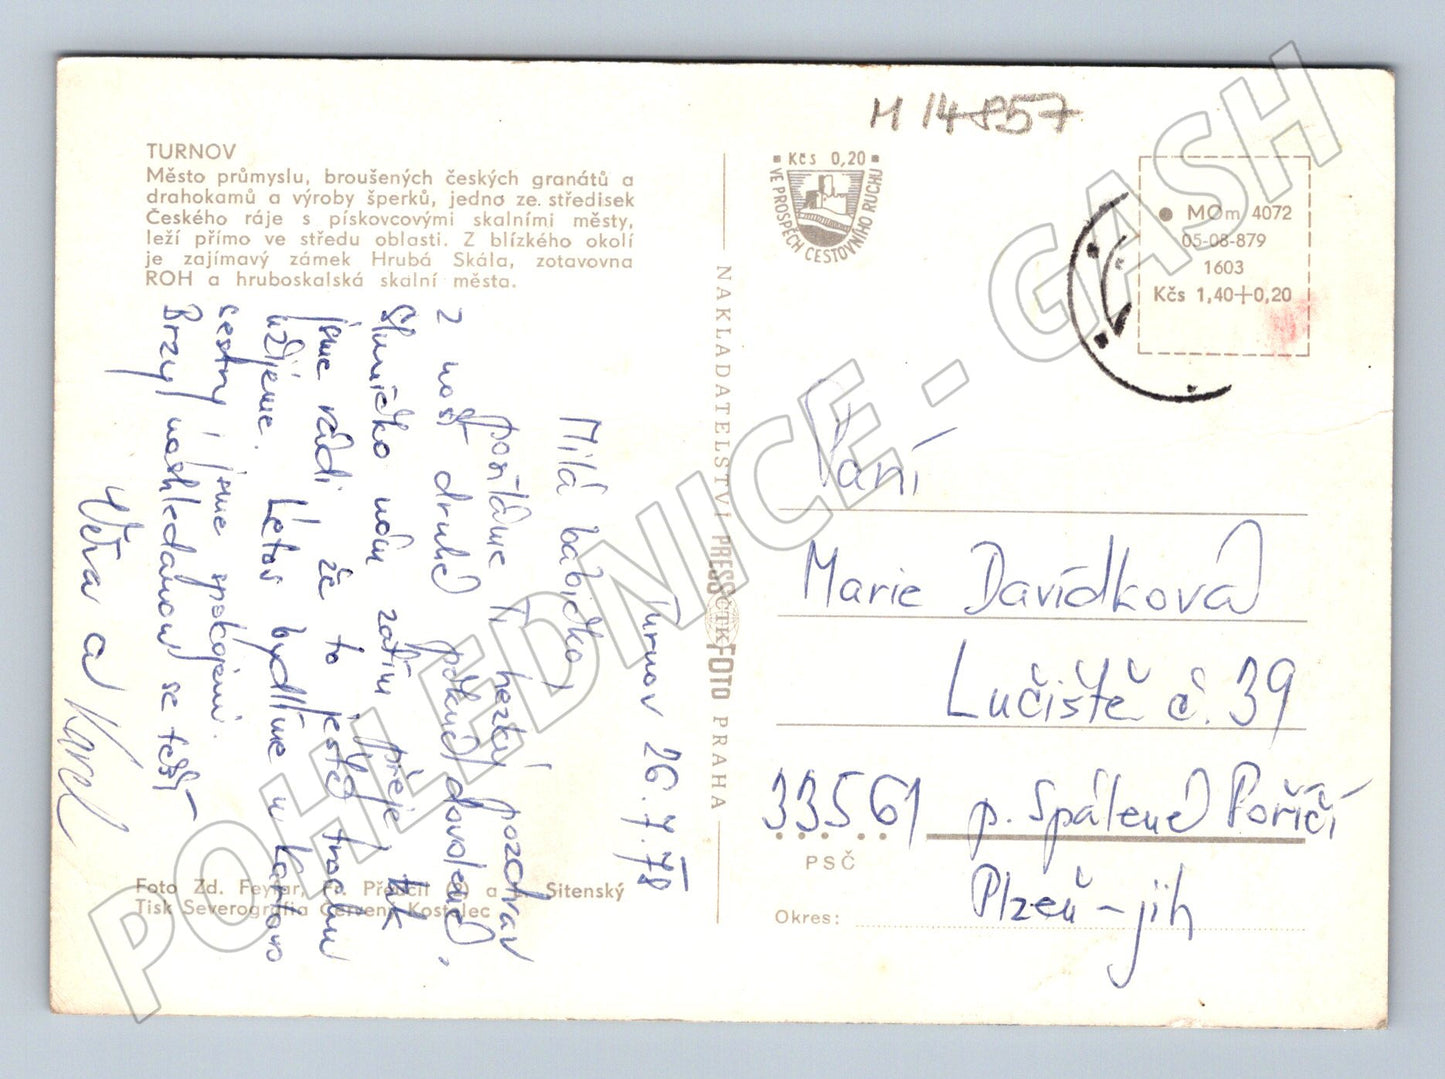 M 14857
TURNOV
Město průmyslu, broušených českých granátů a
drahokamů a výroby šperků, jedno ze středisek
Českého ráje s pískovcovými skalními městy,
leží přímo ve středu oblasti. Z blízkého okolí
je zajímavý zámek Hrubá Skála, zotavovna
ROH a hruboskalská skalní města.
Turnov 26.7.78
Milá babičko,
posíláme Ti hezký pozdrav
z naší druhé půlky dovolené.
Sluníčko nám zatím přeje, tak
jsme rádi že to ještě trochu
užijeme. Letos bydlíme u Karlovo
sestry, jsme spokojeni.
Brzy nashledanou se těší
Věra a Karel
Foto Zd. Feyfar, Fr. Přeučil a Sitenský
Tisk Severografia Červený Kostelec
NAKLADATELSTVÍ PRESSFOTO PRAHA
ČTK
Kčs 0,20
VE PROSPĚCH CESTOVNÍHO RUCHU
MOm 4072
05-08-879
1603
Kčs 1,40+0,20
Paní
Marie Davídková
Lučiště č. 39
33561 p. Spálené Poříčí
PSČ
Plzeň-jih
Okres:
POHLEDNICE - GASH